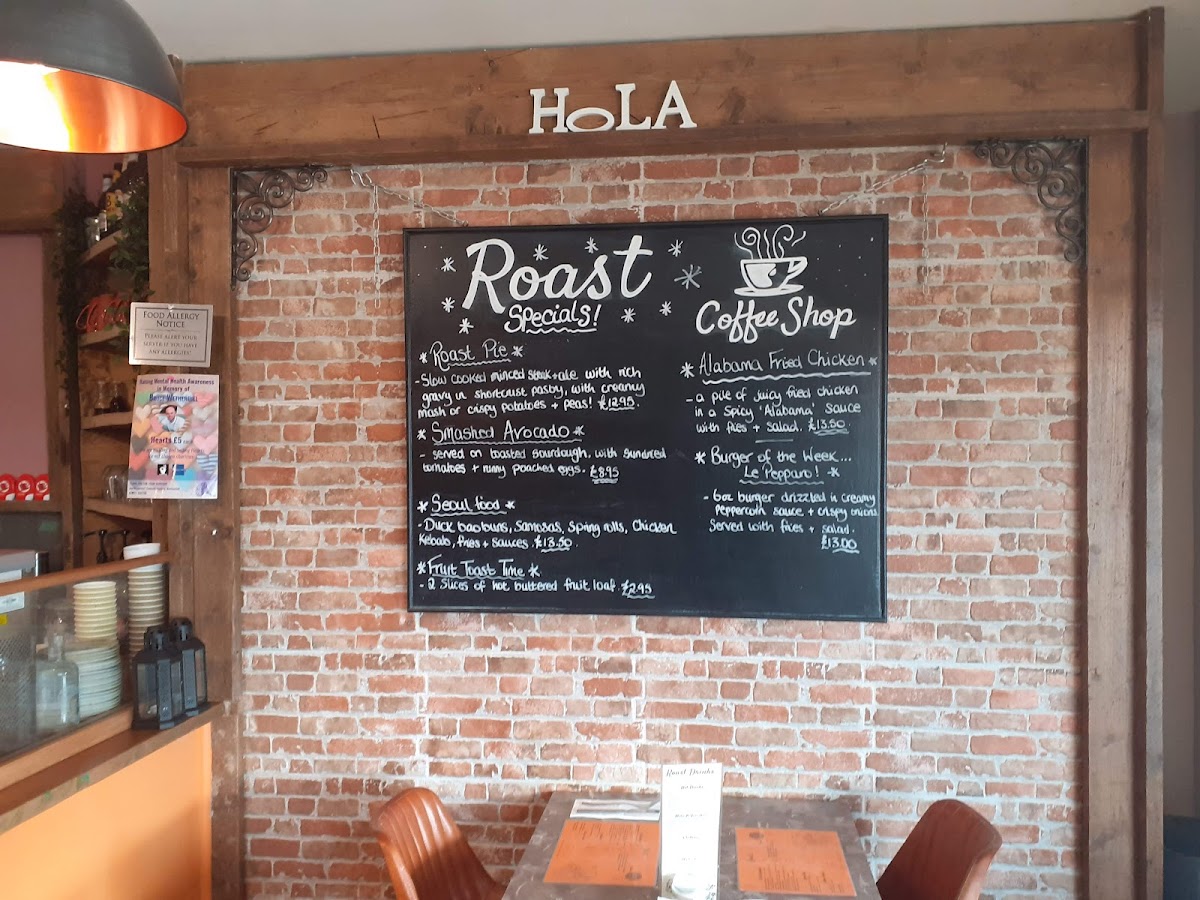 HOLA
Roast
Specials!
Coffee Shop
* Roast Pie *
- Slow cooked minced steak + ale with rich
gravy in shortcrust pastry, with creamy
mash or crispy potatoes + peas! £12.95.
* Smashed Avocado *
- served on toasted sourdough, with sundried
tomatoes + runny poached eggs. £8.95
* Seoul food *
- Duck bao buns, Samosas, Spring rolls, Chicken
Kebabs, fries + sauces. £13.50.
* Fruit Toast Time *
- 2 slices of hot buttered fruit loaf. £2.95
* Alabama Fried Chicken *
- a pile of juicy fried chicken
in a spicy 'Alabama' sauce
with fries + salad. £13.50.
* Burger of the Week...
Le Pepparo! *
- 6oz burger drizzled in creamy
Peppercorn sauce + crispy onions.
Served with fries + salad.
£13.00
Food Allergy
Notice
Please alert your
server if you have
any allergies!
Raising Mental Health Awareness
in Memory of
Hearts £5
Roast Drinks